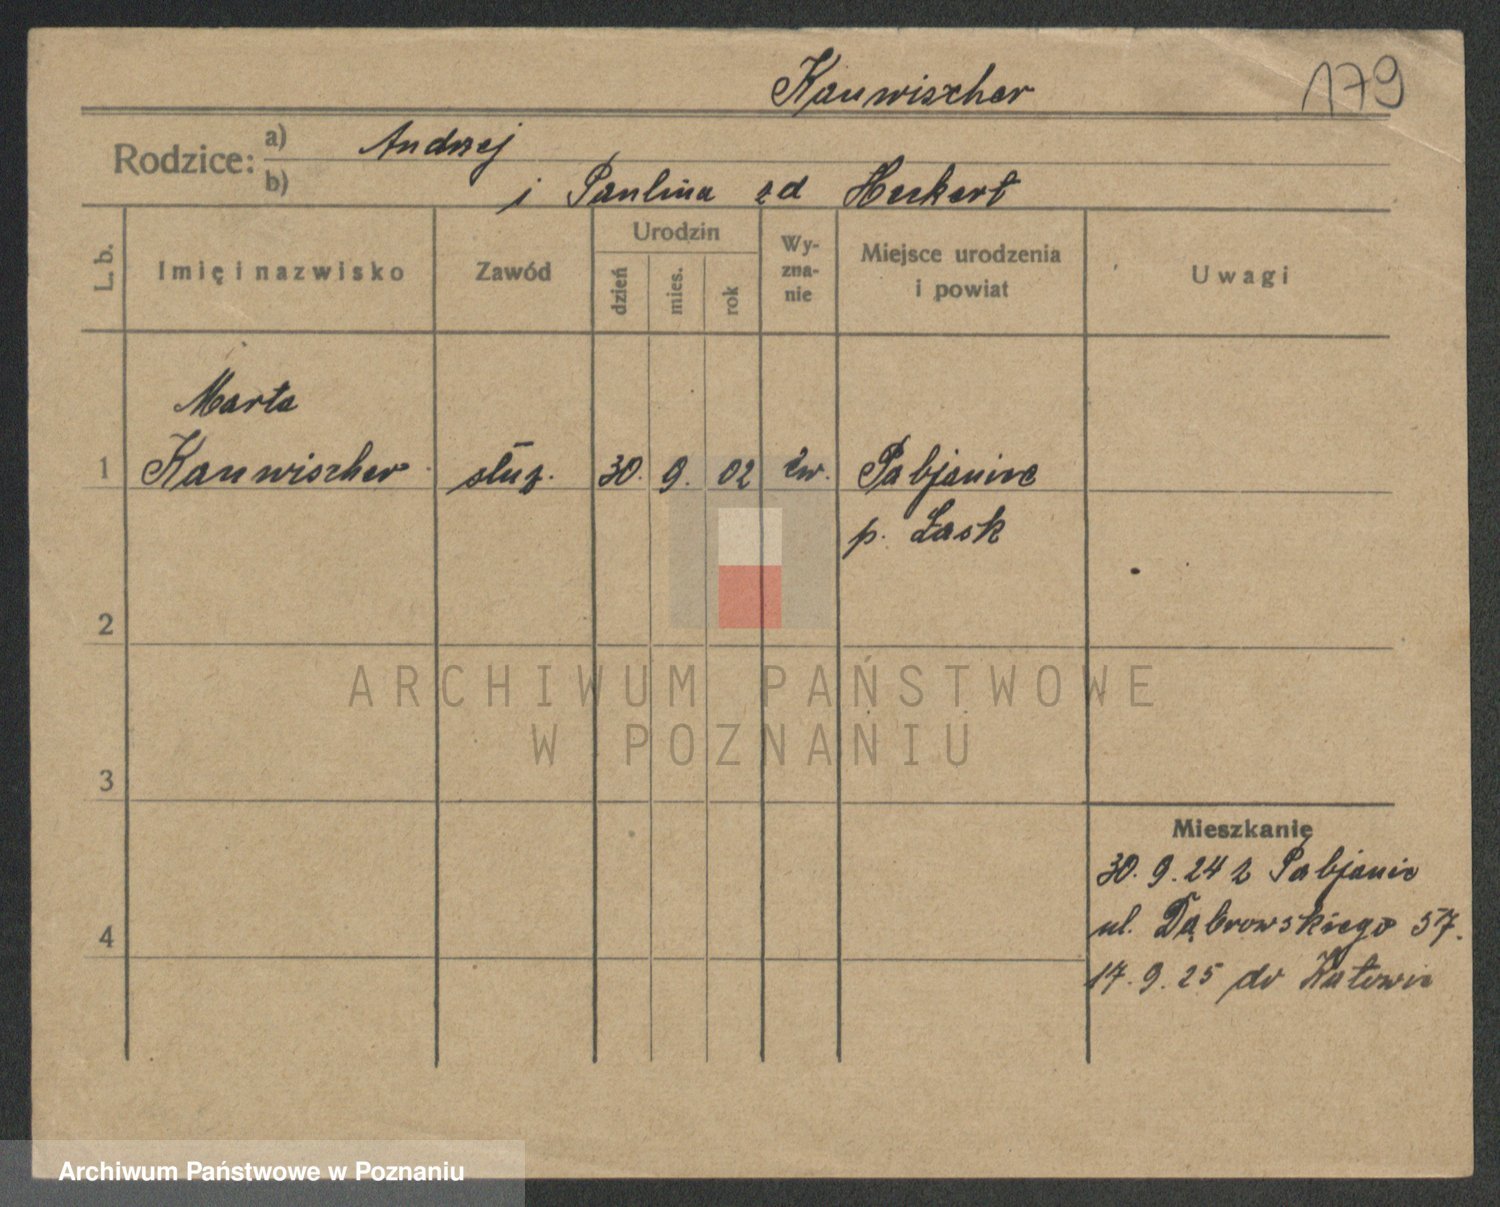 Kauwischer
179
Rodzice:
a) Andrzej
b) i Paulina zd Heckert
L. b.
Imię i nazwisko
Zawód
Urodzin
dzień
mies.
rok
Wy-
zna-
nie
Miejsce urodzenia
i powiat
Uwagi
Marta
1 Kauwischer służ. 30. 9. 02 ew. Pabjanice
p. Łask
2
ARCHIWUM PAŃSTWOWE
W POZNANIU
3
Mieszkanie
30. 9. 24 z Pabjanic
ul. Dąbrowskiego 57.
4
17. 9. 25 do Katowic
Archiwum Państwowe w Poznaniu